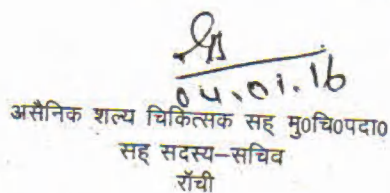 04.01.16
असैनिक शल्य चिकित्सक सह मु0चि0पदा0
सह सदस्य–सचिव
राँची